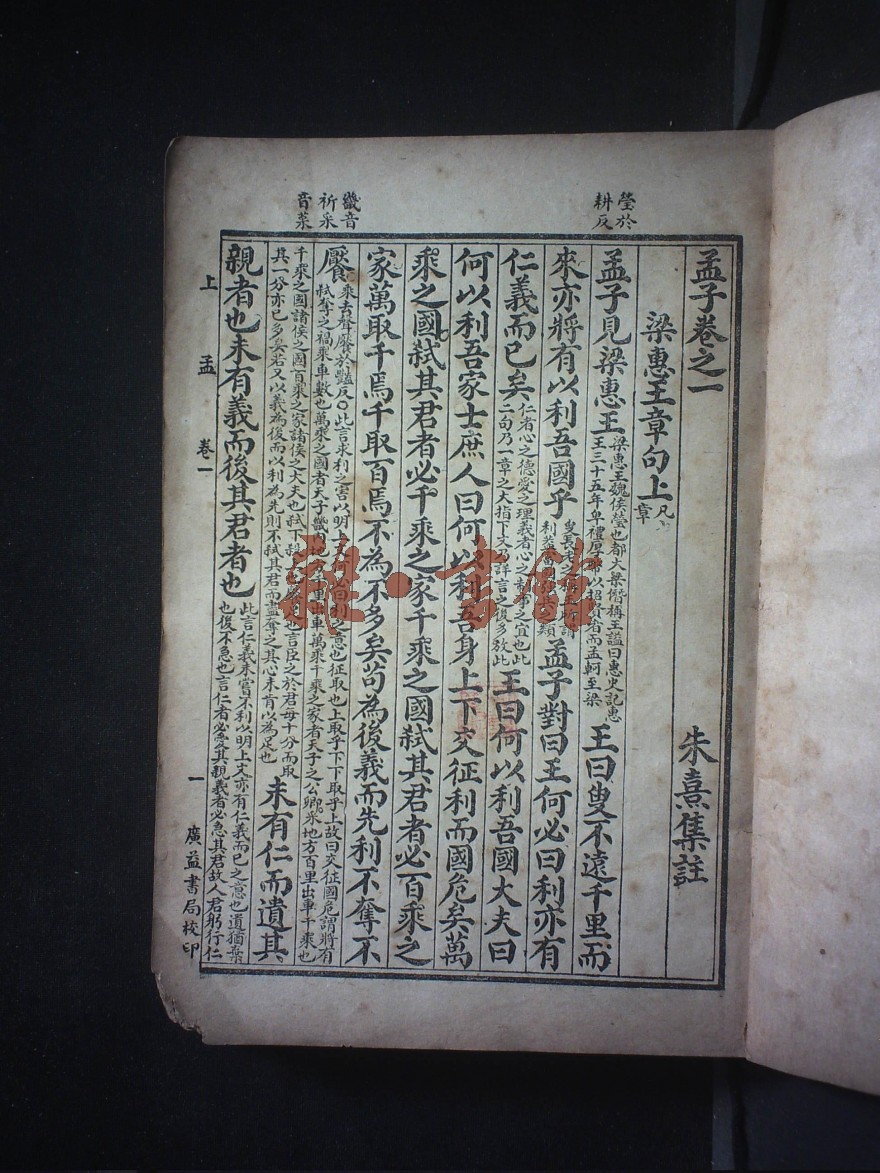 瑩於
耕反
孟子卷之一
朱熹集註
梁惠王章句上
凡
章
孟子見梁惠王
梁惠王魏侯罃也都大梁僭稱王謚曰惠史記惠
王三十五年卑禮厚幣以招賢者而孟軻至梁
王曰叟不遠千里而
來亦將有以利吾國乎
叟長老之
利蓋富國
類
孟子對曰王何必曰利亦有
仁義而已矣
仁者心之德愛之理義者心之制事之宜也此
二句乃一章之大指下文乃詳言之後多放此
王曰何以利吾國大夫曰
何以利吾家士庶人曰何以利吾身上下交征利而國危矣萬
乘之國弒其君者必千乘之家千乘之國弒其君者必百乘之
家萬取千焉千取百焉不為不多矣苟為後義而先利不奪不
饜
畿音
祈采
音菜
乘去聲饜於豔反○此言求利之害以明上文何必曰利之意也征取也上取乎下下取乎上故曰交征國危謂將有
弒奪之禍乘車數也萬乘之國者天子畿內地方千里出車萬乘千乘之家者天子之公卿采地方百里出車千乘也
千乘之國諸侯之國百乘之家諸侯之大夫也弒下殺上也饜足也言臣之於君每十分而取
其一分亦已多矣若又以義為後而以利為先則不弒其君而盡奪之其心未肯以為足也
未有仁而遺其
親者也未有義而後其君者也
此言仁義未嘗不利以明上文亦有仁義而已之意也遺猶棄
也後不急也言仁者必愛其親義者必急其君故人君躬行仁
上
孟
卷一
一
廣益書局校印
雜·書館